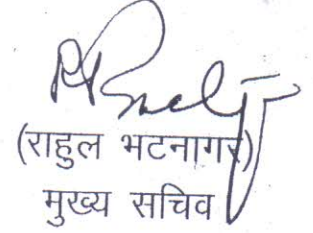 (राहुल भटनागर)
मुख्य सचिव